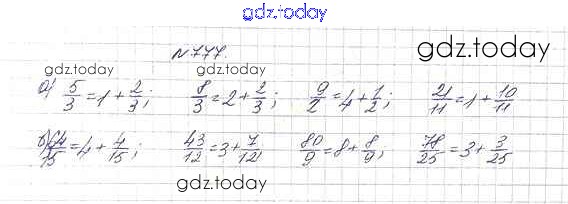 gdz.today
№777.
gdz.today
gdz.today gdz.today
а) 5/3 = 1 + 2/3; 8/3 = 2 + 2/3; 9/2 = 4 + 1/2; 21/11 = 1 + 10/11
б) 64/15 = 4 + 4/15; 43/12 = 3 + 7/12; 80/9 = 8 + 8/9; 78/25 = 3 + 3/25
gdz.today